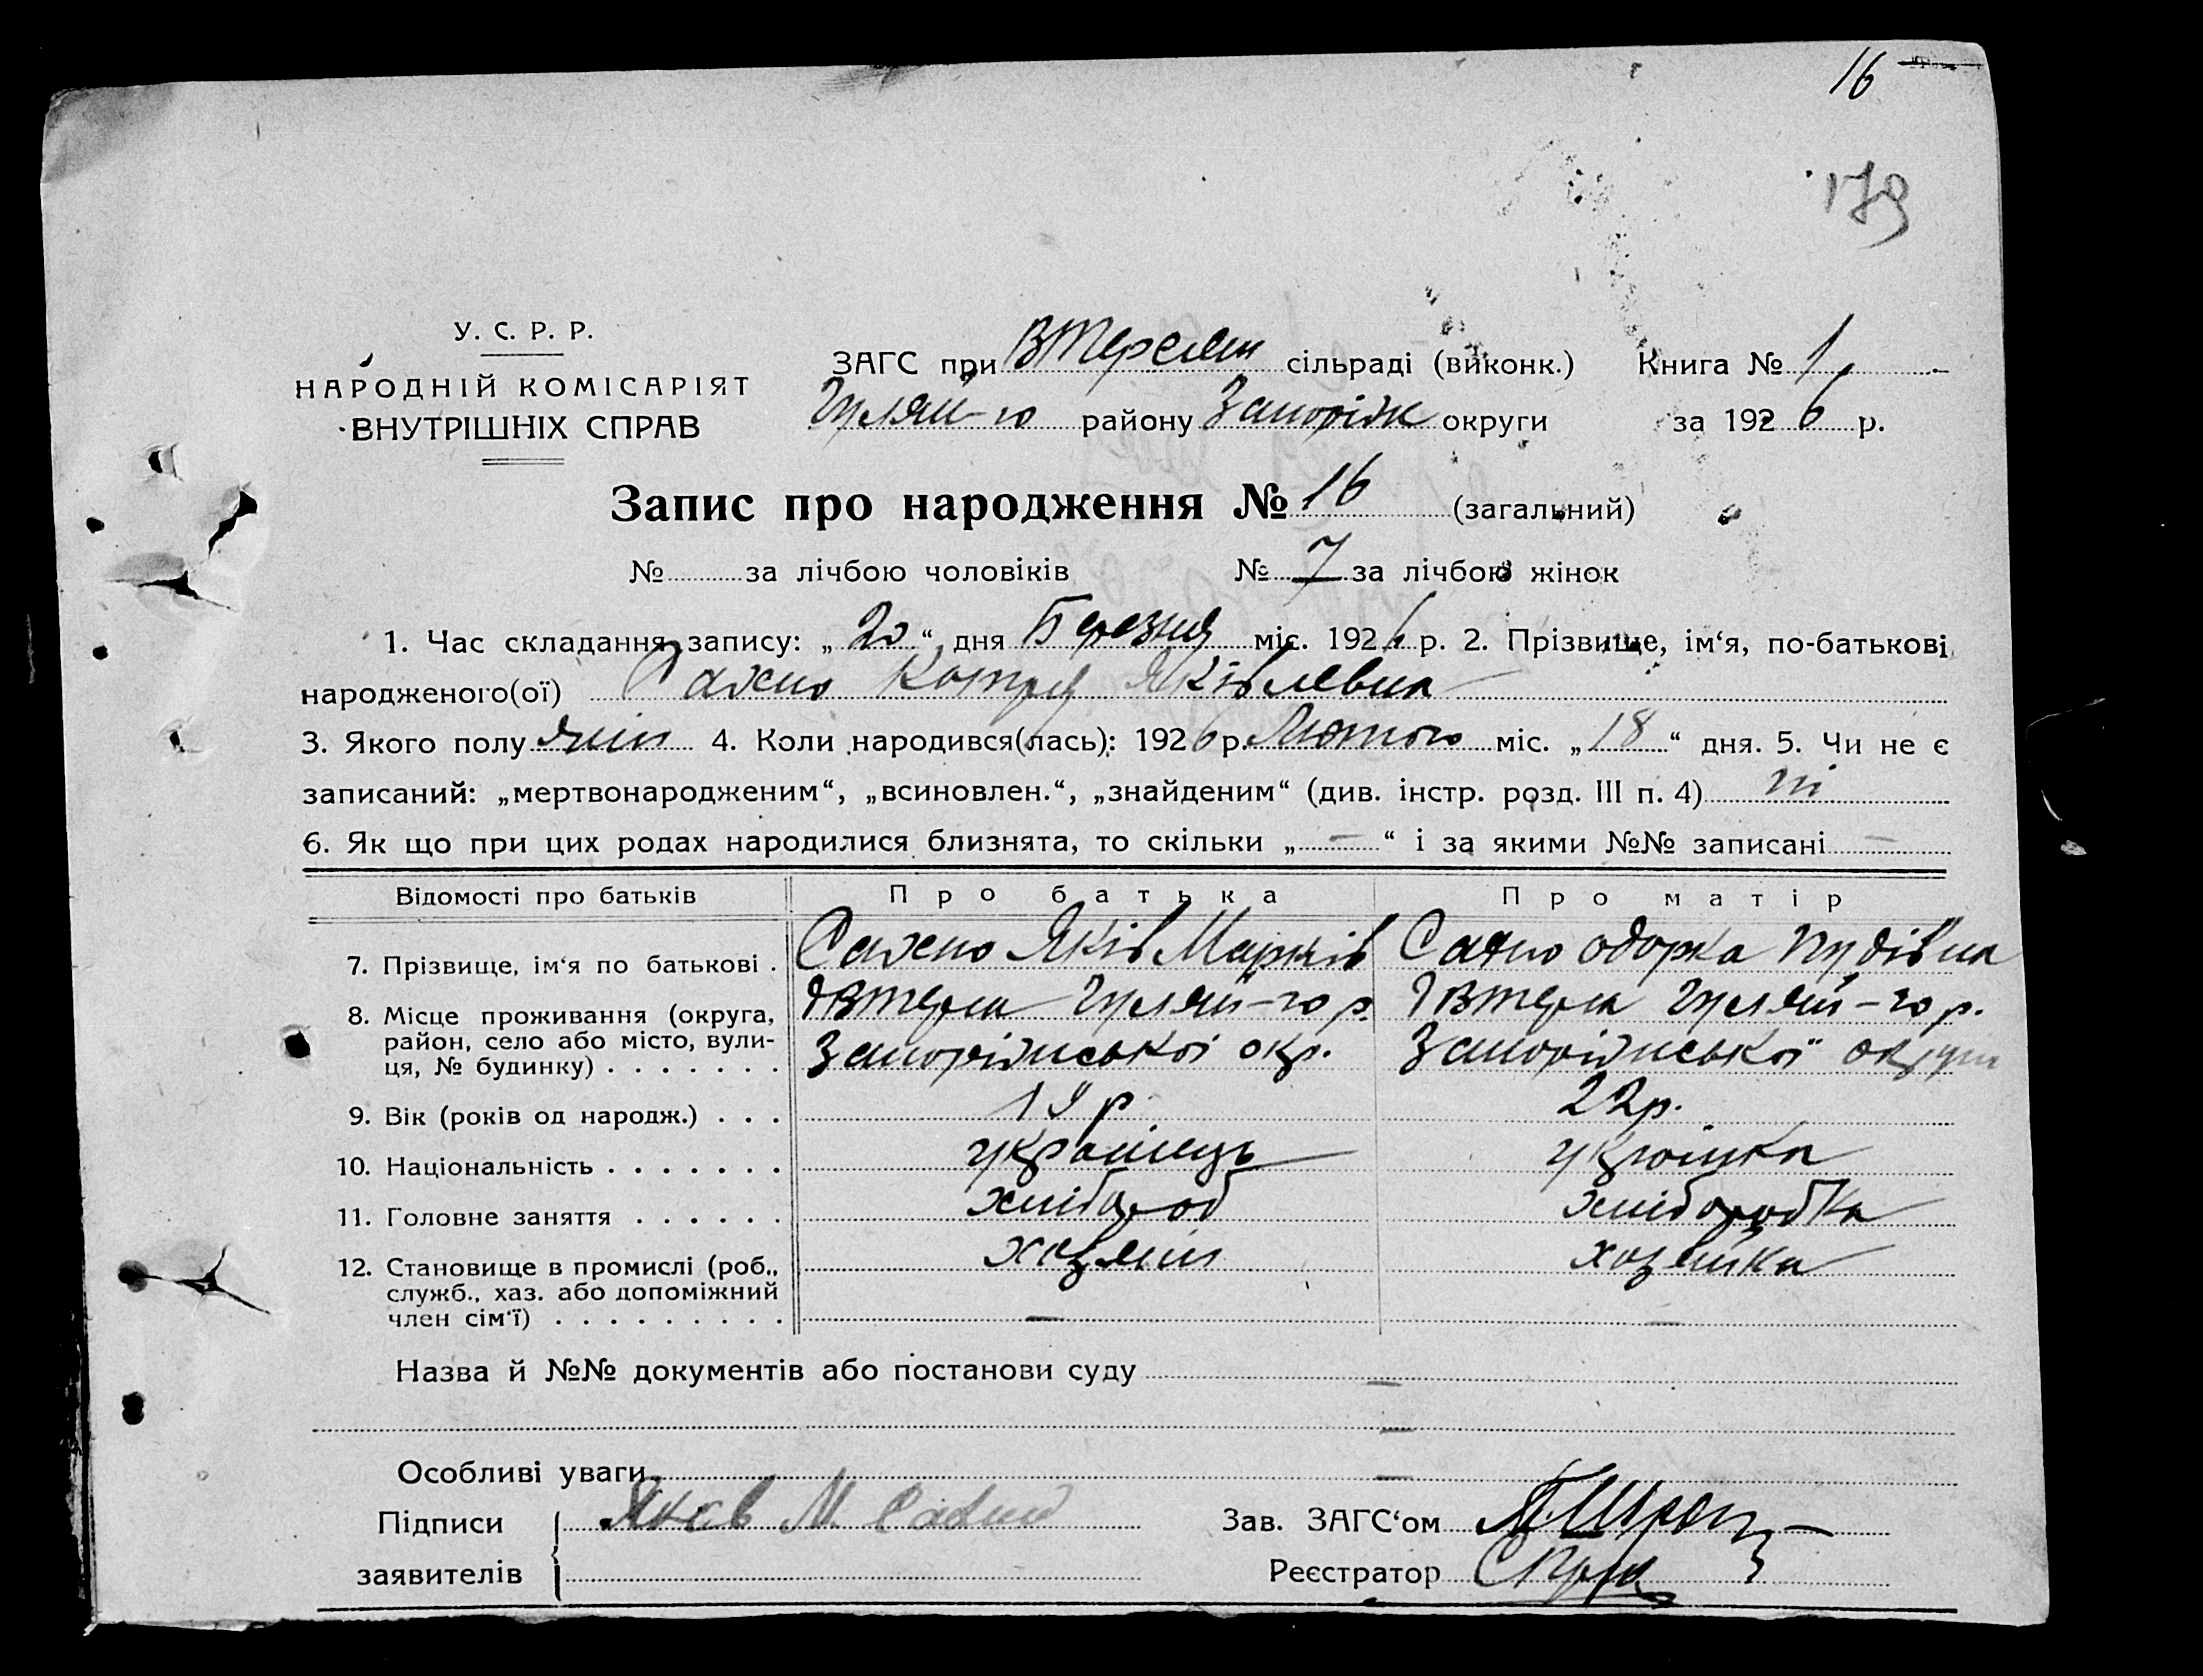 16
179
У. С. Р. Р.
НАРОДНІЙ КОМІСАРІЯТ
ВНУТРІШНІХ СПРАВ
ЗАГС при сільраді (виконк.) Книга № 1
Гуляй-го району Запоріж округи за 1926 р.
Запис про народження № 16 (загальний)
№ за лічбою чоловіків № 7 за лічбою жінок
1. Час складання запису: „20“ дня Березня міс. 1926 р. 2. Прізвище, ім‘я, по-батькові
народженого(ої) Сахно Яківлевна
3. Якого полу жін 4. Коли народився(лась): 1926 р. Лютого міс. „18“ дня. 5. Чи не є
записаний: „мертвонародженим“, „всиновлен.“, „знайденим“ (див. інстр. розд. III п. 4) ні
6. Як що при цих родах народилися близнята, то скільки „—“ і за якими №№ записані —
Відомості про батьків Про батька Про матір
7. Прізвище, ім‘я по батькові . Сахно Яків Марків Сахно Одорка
8. Місце проживання (округа, Гуляй-го р. Гуляй-го р.
район, село або місто, вули- Запоріжської окр. Запоріжської округи
ця, № будинку) . . . . . . .
9. Вік (років од народж.) . . . 19 р 22 р.
10. Національність . . . . . . . украінець украінка
11. Головне заняття . . . . . . хлібороб хліборобка
12. Становище в промислі (роб., хазяїн хазяйка
служб., хаз. або допоміжний
член сім‘ї) . . . . . . . . . — —
Назва й №№ документів або постанови суду —
—
Особливі уваги —
Підписи Яков М. Сахно Зав. ЗАГС‘ом
заявителів Реєстратор